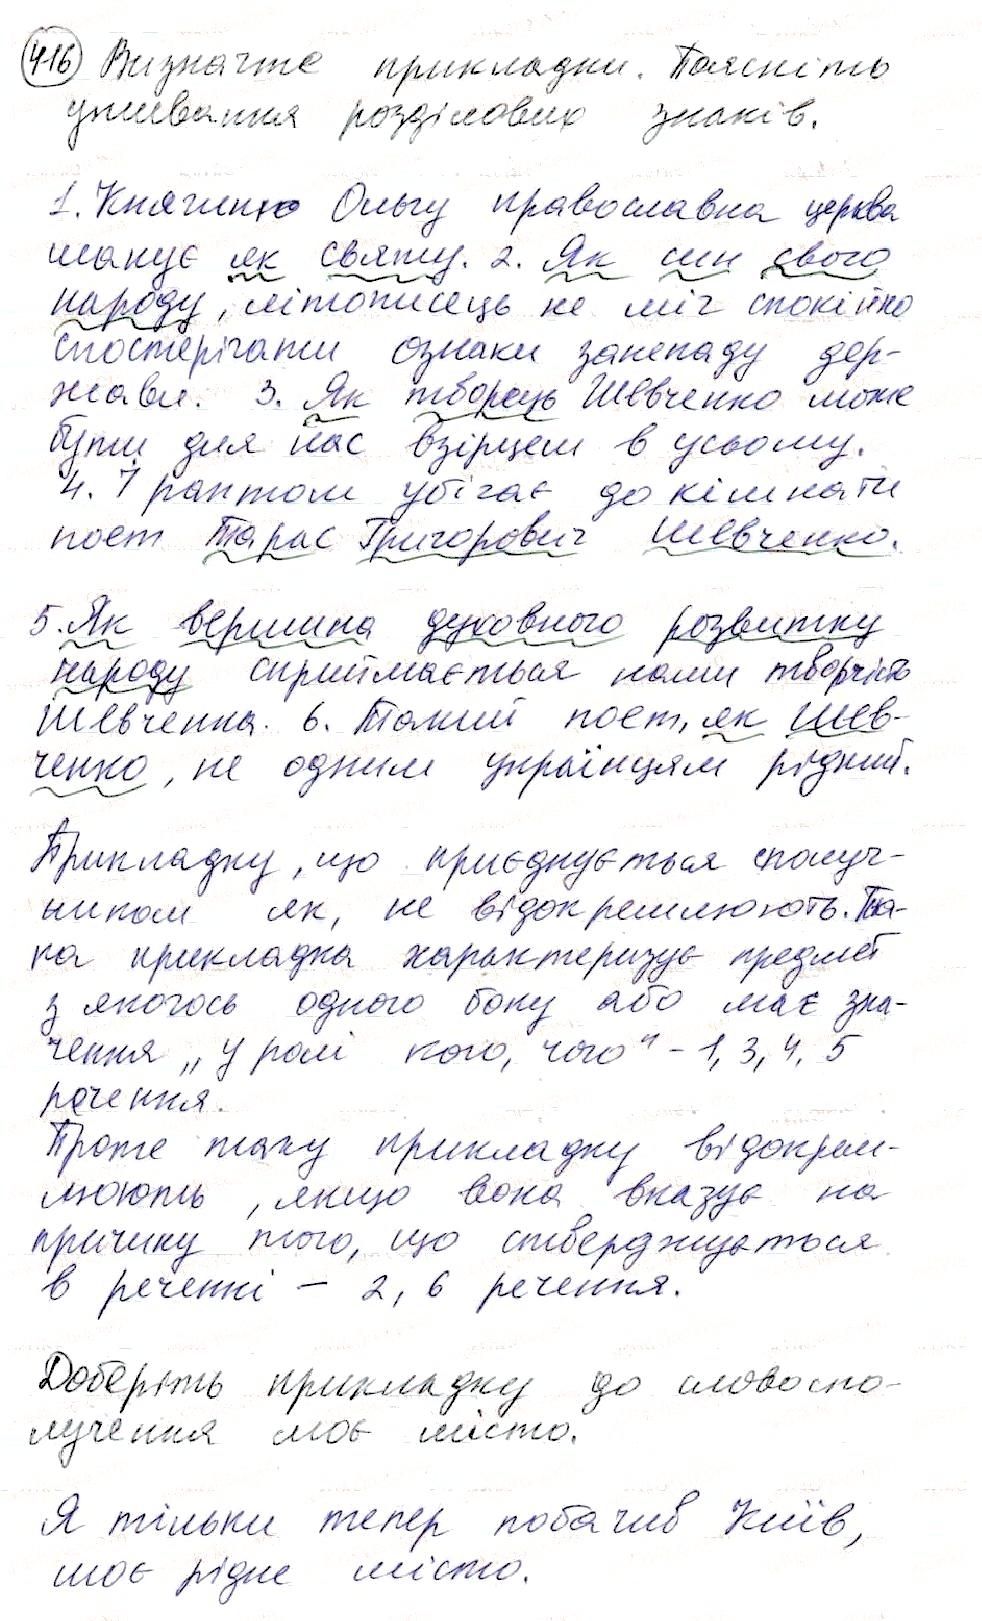 416 Визначте прикладки. Поясніть
уживання розділових знаків.
1. Княгиню Ольгу православна церква
шанує як святу. 2. Як син свого
народу, літописець не міг спокійно
спостерігати ознаки занепаду дер-
жави. 3. Як творець Шевченко може
бути для нас взірцем в усьому.
4. І раптом убігає до кімнати
поет Тарас Григорович Шевченко.
5. Як вершина духовного розвитку
народу сприймається нами творчість
Шевченка. 6. Такий поет, як Шев-
ченко, не одним українцям рідний.
Прикладку, що приєднується сполуч-
ником як, не відокремлюють. Та-
ка прикладка характеризує предмет
з якогось одного боку або має зна-
чення „у ролі кого, чого" - 1, 3, 4, 5
речення.
Проте таку прикладку відокрем-
люють, якщо вона вказує на
причину того, що стверджується
в реченні - 2, 6 речення.
Доберіть прикладку до словоспо-
лучення моє місто.
Я тільки тепер побачив Київ,
моє рідне місто.